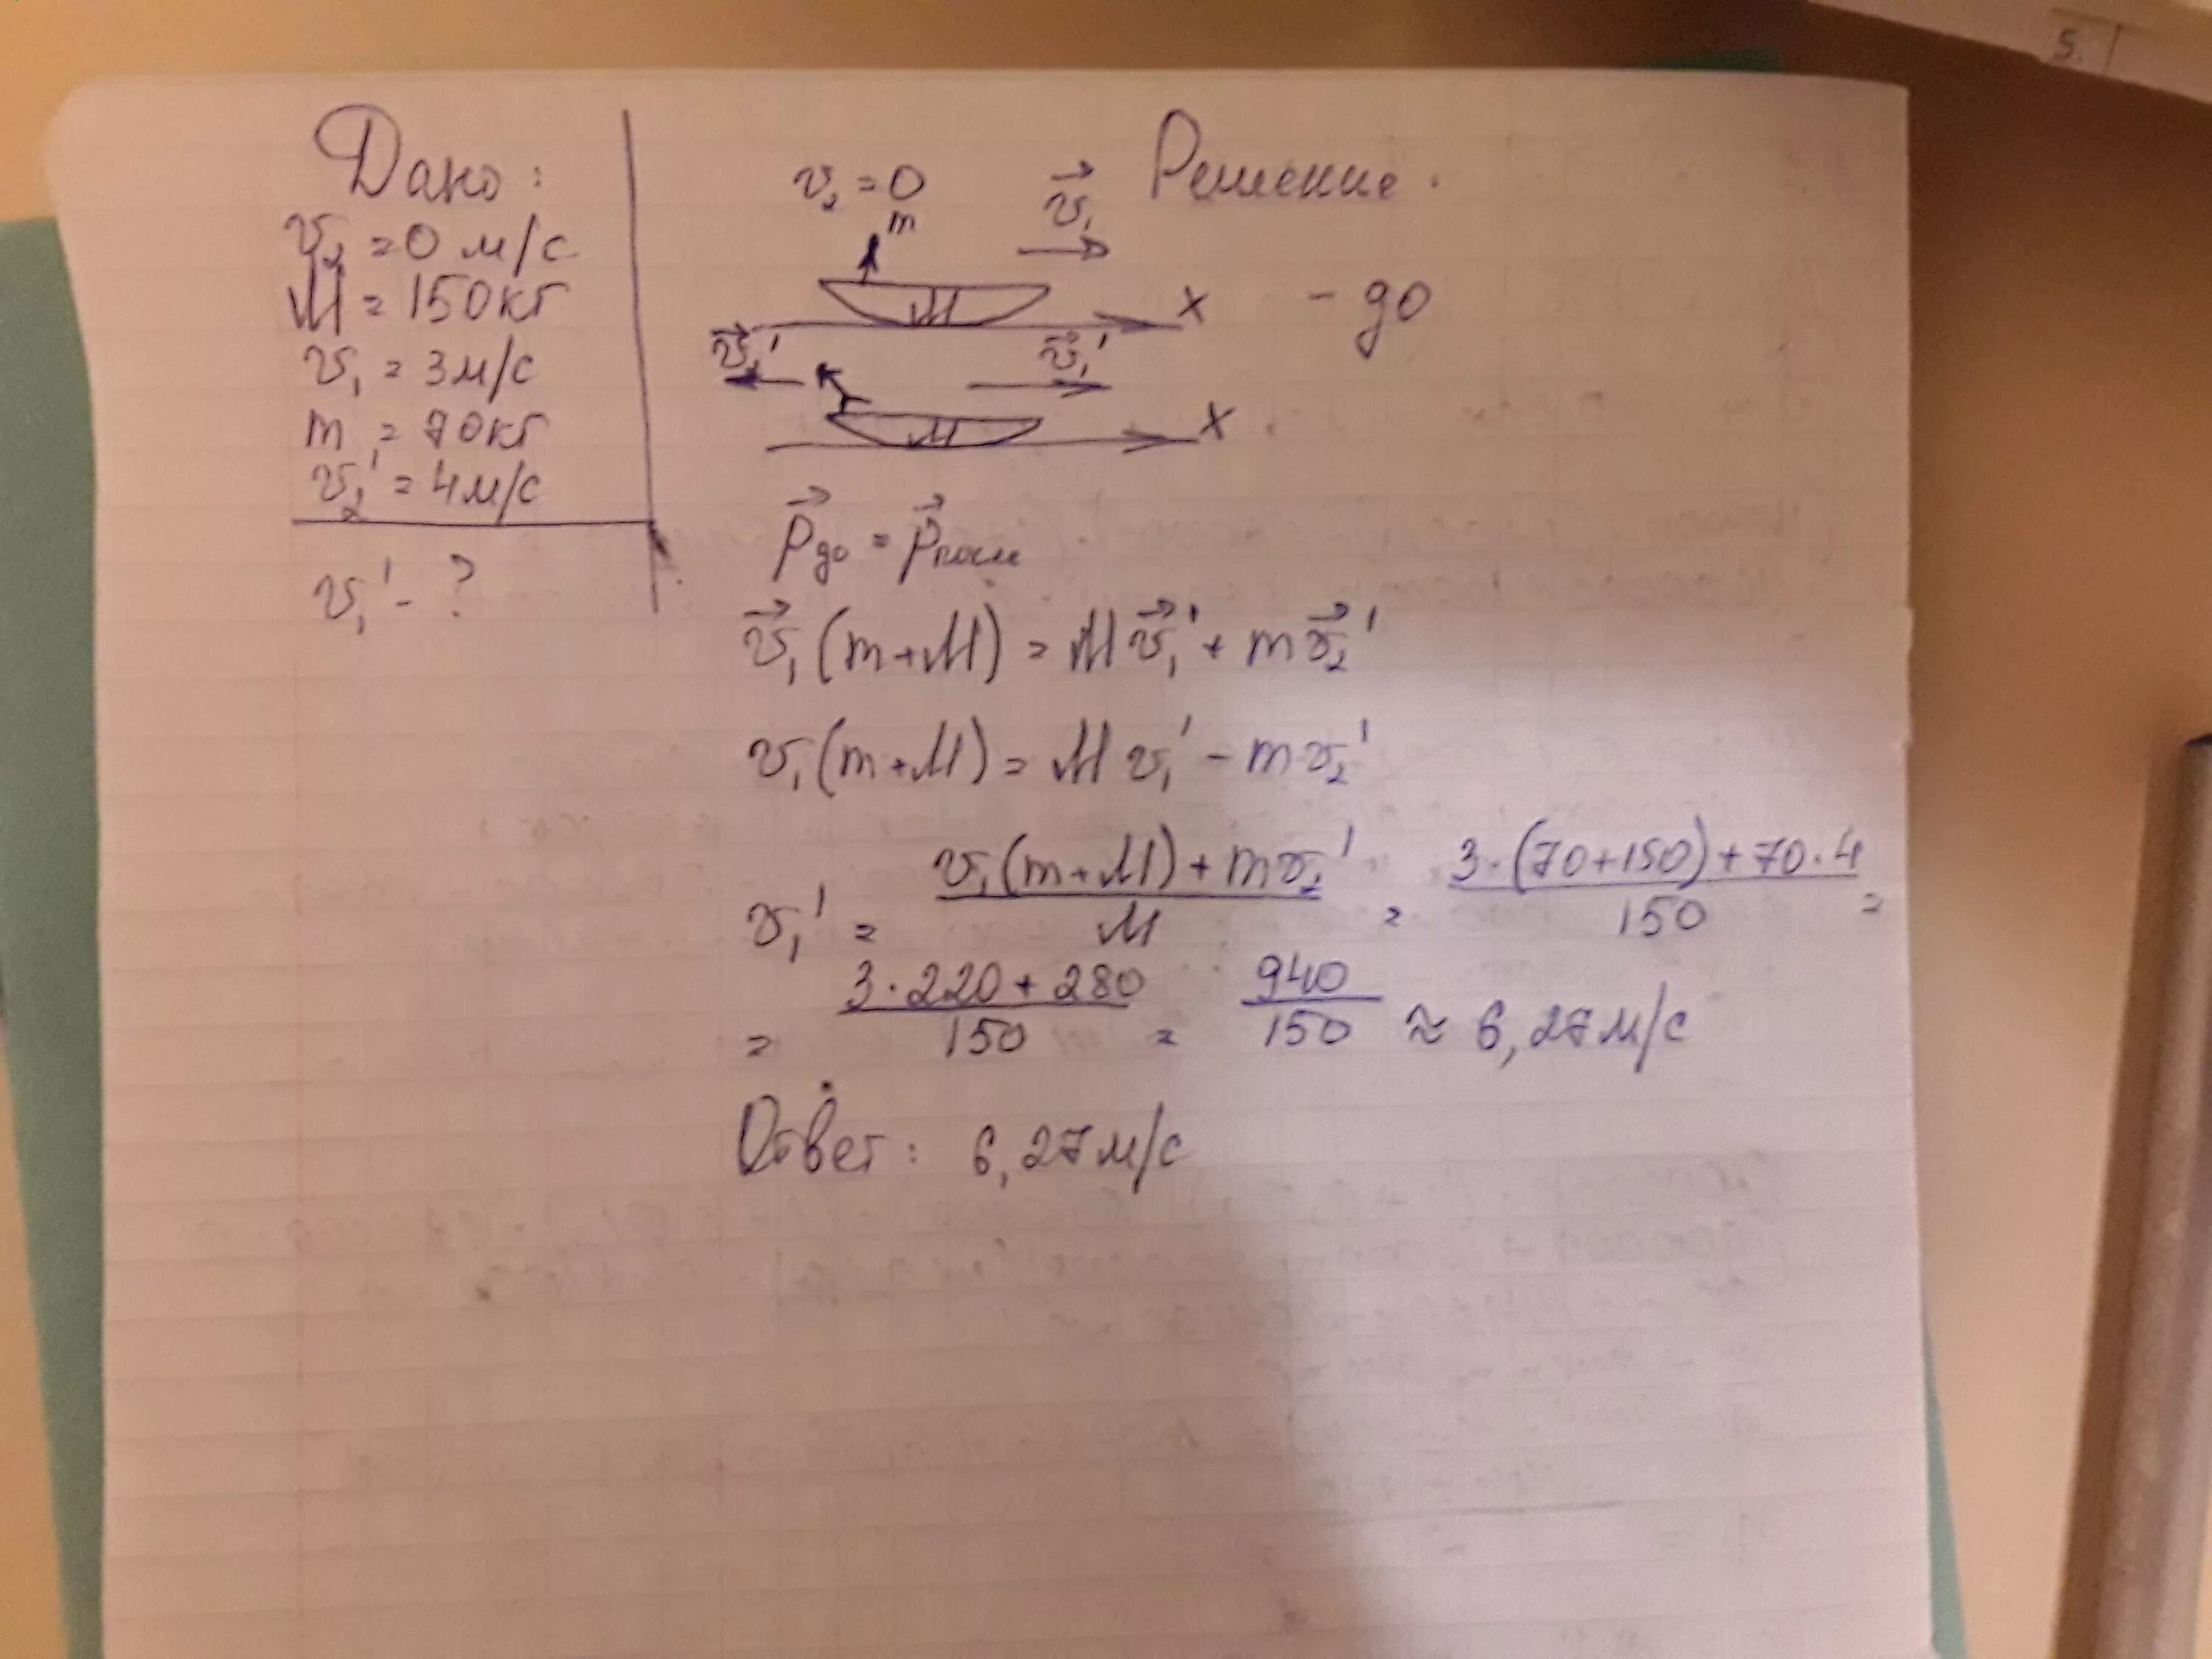 5.
Дано:
v₂ = 0 м/с
M = 150кг
v₁ = 3м/с
m = 70кг
v₂' = 4м/с
v₁' - ?
Решение.
v₂ = 0
v⃗₁
m
M
x
- до
v⃗₁'
v⃗₁'
M
x
p⃗до = p⃗после
v⃗₁(m+M) = Mv⃗₁' + mv⃗₂'
v₁(m+M) = Mv₁' - mv₂'
v₁' = (v₁(m+M) + mv₂')/M = (3·(70+150)+70·4)/150 =
= (3·220+280)/150 = 940/150 ≈ 6,27м/с
Ответ: 6,27м/с